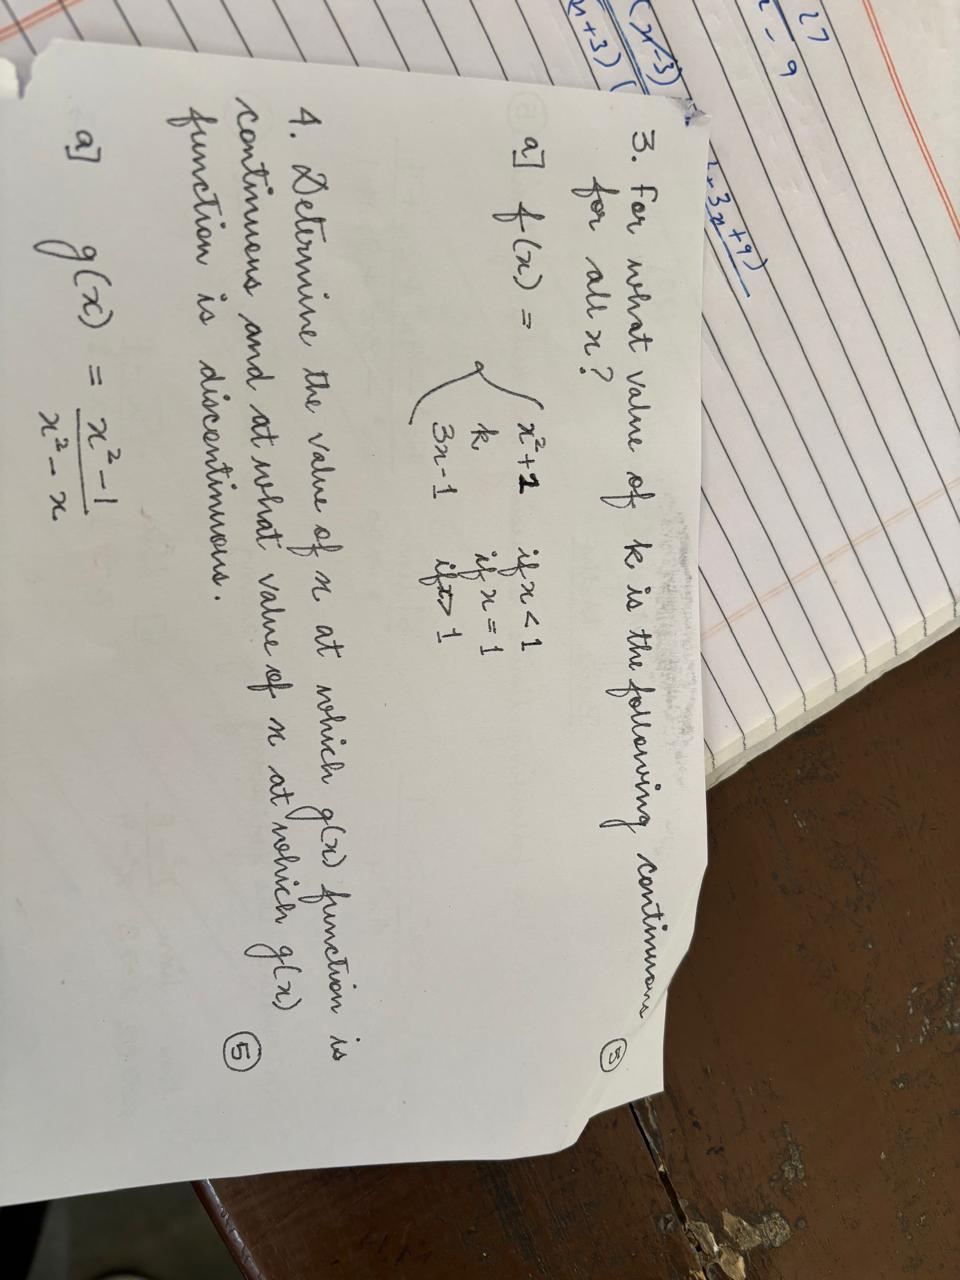 27
- 9
(x-3)
x+3) (
3x+9)
3. For what value of k is the following continuous
for all x?
(5)
a] f(x) = { x²+1 if x < 1
k if x = 1
3x-1 if x > 1
4. Determine the value of x at which g(x) function is
continuous and at what value of x at which g(x)
function is discontinuous.
(5)
a] g(x) = x² - 1
x² - x